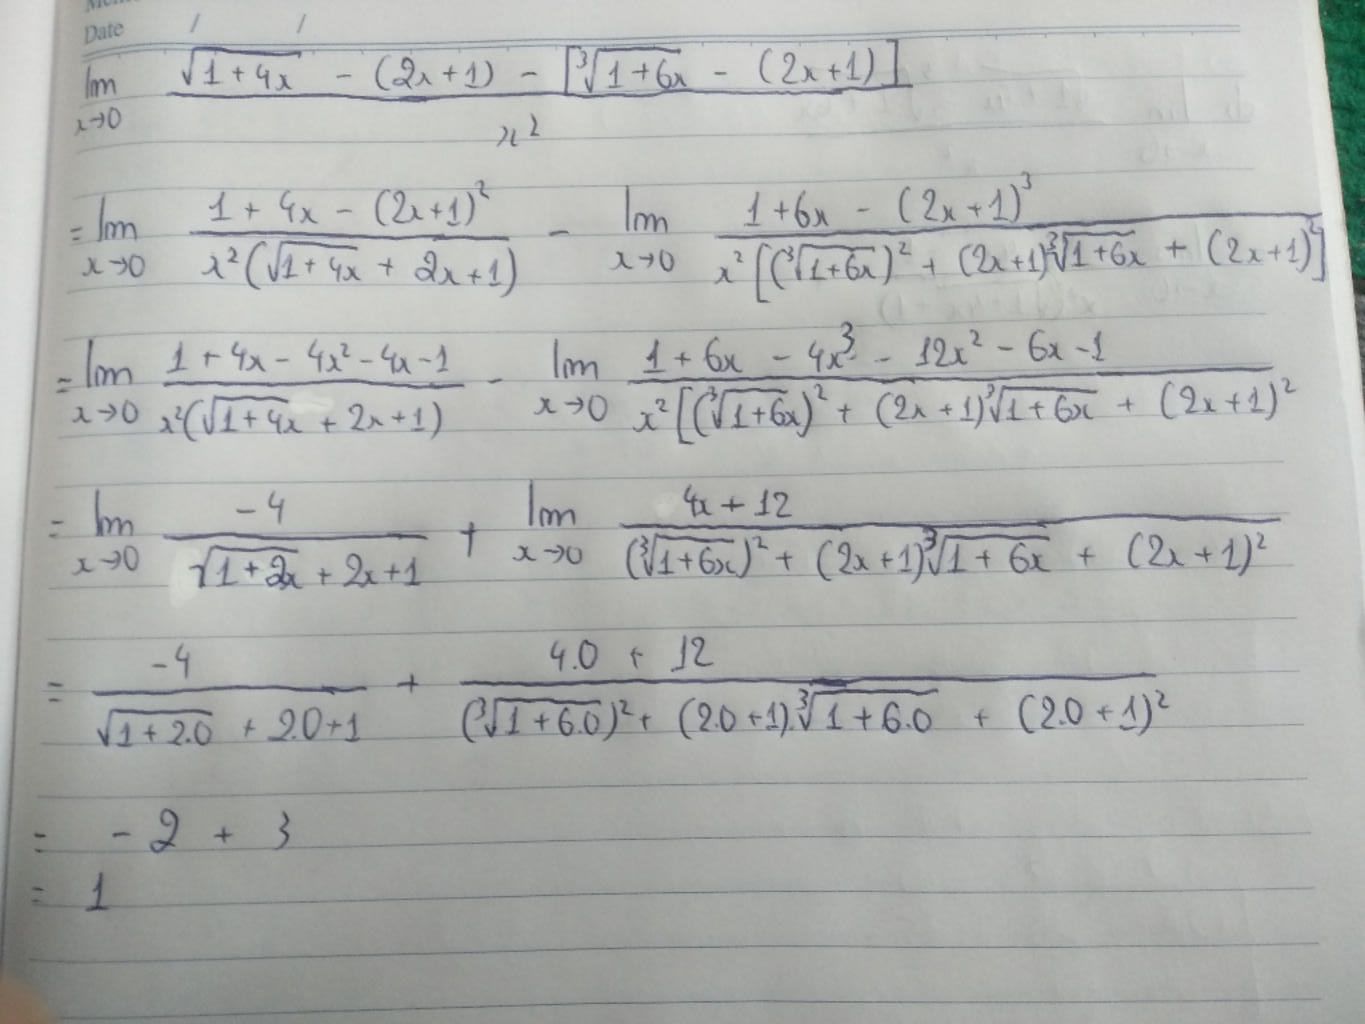 Date / /
lim x→0 (√(1+4x) - (2x+1) - [∛(1+6x) - (2x+1)]) / x²
= lim x→0 (1 + 4x - (2x+1)²) / (x²(√(1+4x) + 2x+1)) - lim x→0 (1+6x - (2x+1)³) / (x²[(∛(1+6x))² + (2x+1)∛(1+6x) + (2x+1)²])
= lim x→0 (1 + 4x - 4x² - 4x - 1) / (x²(√(1+4x) + 2x+1)) - lim x→0 (1 + 6x - 4x³ - 12x² - 6x - 1) / (x²[(∛(1+6x))² + (2x+1)∛(1+6x) + (2x+1)²
= lim x→0 (-4) / (√(1+2x) + 2x+1) + lim x→0 (4x + 12) / ((∛(1+6x))² + (2x+1)∛(1+6x) + (2x+1)²)
= (-4) / (√(1+2.0) + 2.0+1) + (4.0 + 12) / ((∛(1+6.0))² + (2.0+1).∛(1+6.0) + (2.0+1)²)
= -2 + 3
= 1